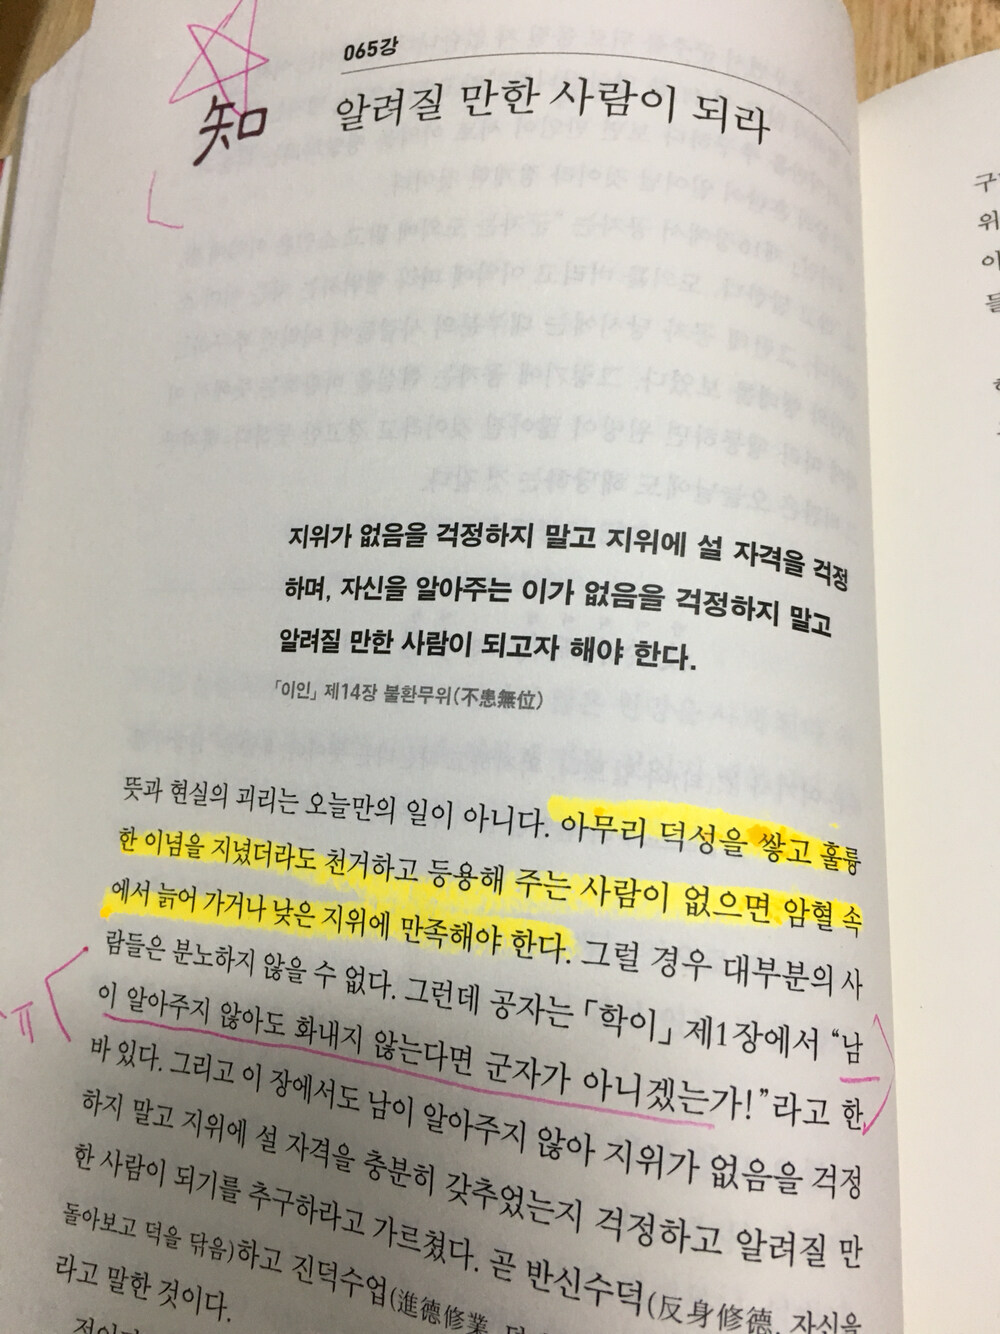 065강
知
알려질 만한 사람이 되라
지위가 없음을 걱정하지 말고 지위에 설 자격을 걱정
하며, 자신을 알아주는 이가 없음을 걱정하지 말고
알려질 만한 사람이 되고자 해야 한다.
「이인」 제14장 불환무위(不患無位)
뜻과 현실의 괴리는 오늘만의 일이 아니다. 아무리 덕성을 쌓고 훌륭
한 이념을 지녔더라도 천거하고 등용해 주는 사람이 없으면 암혈 속
에서 늙어 가거나 낮은 지위에 만족해야 한다. 그럴 경우 대부분의 사
람들은 분노하지 않을 수 없다. 그런데 공자는 「학이」 제1장에서 “남
이 알아주지 않아도 화내지 않는다면 군자가 아니겠는가!”라고 한
바 있다. 그리고 이 장에서도 남이 알아주지 않아 지위가 없음을 걱정
하지 말고 지위에 설 자격을 충분히 갖추었는지 걱정하고 알려질 만
한 사람이 되기를 추구하라고 가르쳤다. 곧 반신수덕(反身修德, 자신을
돌아보고 덕을 닦음)하고 진덕수업(進德修業, 덕
라고 말한 것이다.
구
위
아
들